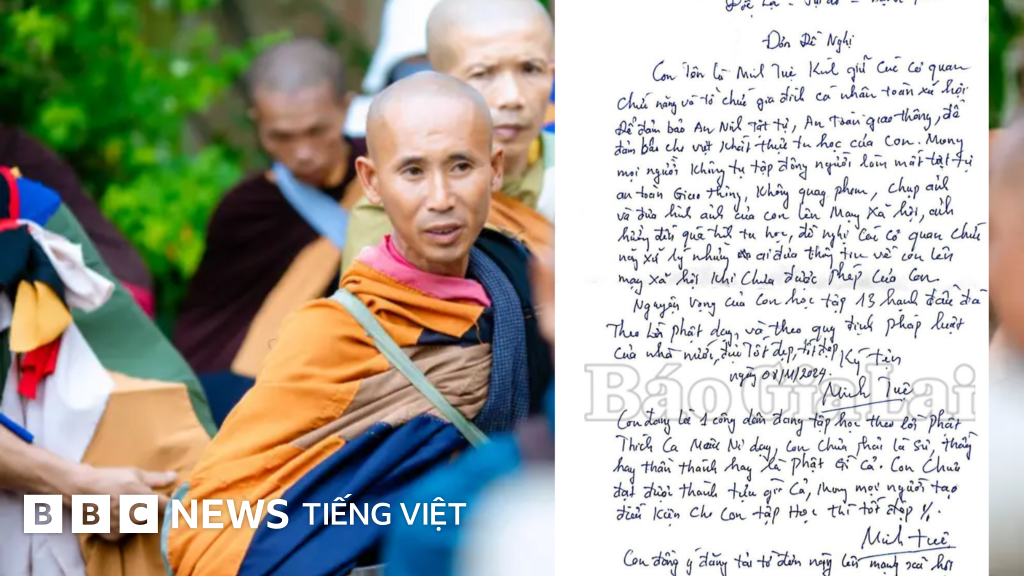 Đơn Đề Nghị
Con Tên là Minh Tuệ Kính gửi các cơ quan
chức năng và tổ chức gia đình cá nhân toàn xã hội
Để đảm bảo An Ninh Trật tự, An Toàn giao thông, để
đảm bảo cho việc khất thực tu học của con. Mong
mọi người không tụ tập đông người làm mất trật tự
an toàn Giao thông, Không quay phim, chụp ảnh
và đưa hình ảnh của con lên Mạng Xã hội, ảnh
hưởng đến quá trình tu học, đề nghị các cơ quan chức
năng xử lý những ai đưa thông tin về con lên
mạng xã hội khi chưa được phép của con.
Nguyện vọng của con học tập 13 hạnh đầu đà
Theo lời phật dạy, và theo quy định pháp luật
của nhà nước, đều tốt đẹp, tốt đẹp Ký tên
ngày 08/11/2024.
Minh Tuệ
BáoGiaLai
Con đang là 1 công dân đang tập học theo lời Phật
Thích Ca Mâu Ni dạy, con chưa phải là sư, thầy
hay thần thánh hay là phật gì cả. Con chưa
đạt được thành tựu gì cả, mong mọi người tạo
điều kiện cho con tập học thì tốt đẹp
Minh Tuệ
Con đồng ý đăng tải tờ đơn này lên mạng xã hội
BBC NEWS TIẾNG VIỆT